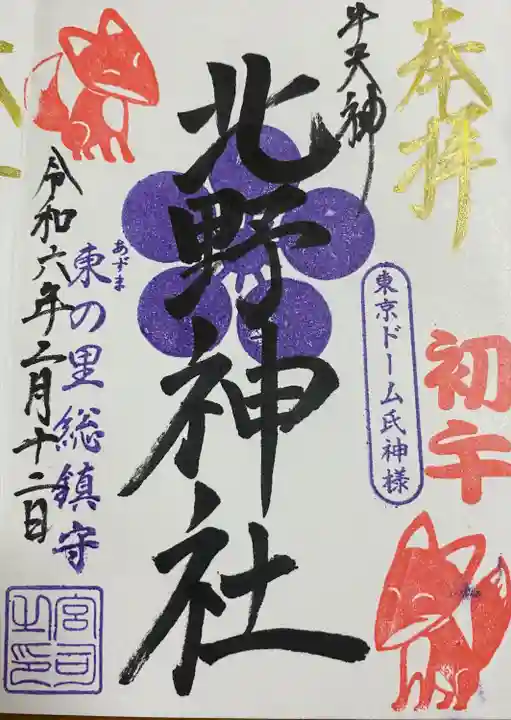 奉拝
初午
牛天神
東京ドーム氏神様
北野神社
あずま
東の里総鎮守
令和六年二月十二日